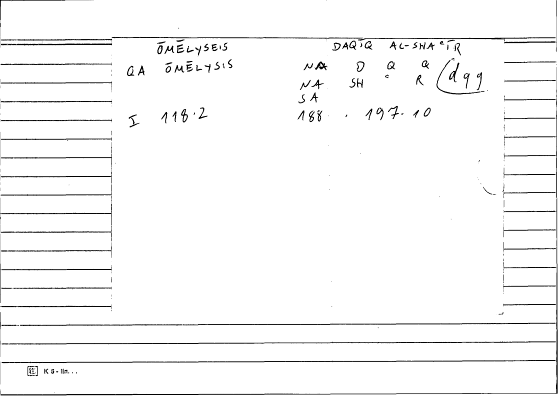 ŌMĒLYSEIS DAQĪQ AL-SHAʿĪR
QA ŌMĒLYSIS NA D Q Q dqq
NA SH ʿ R
SA
I 118.2 188. 197.10
K 8-lin...